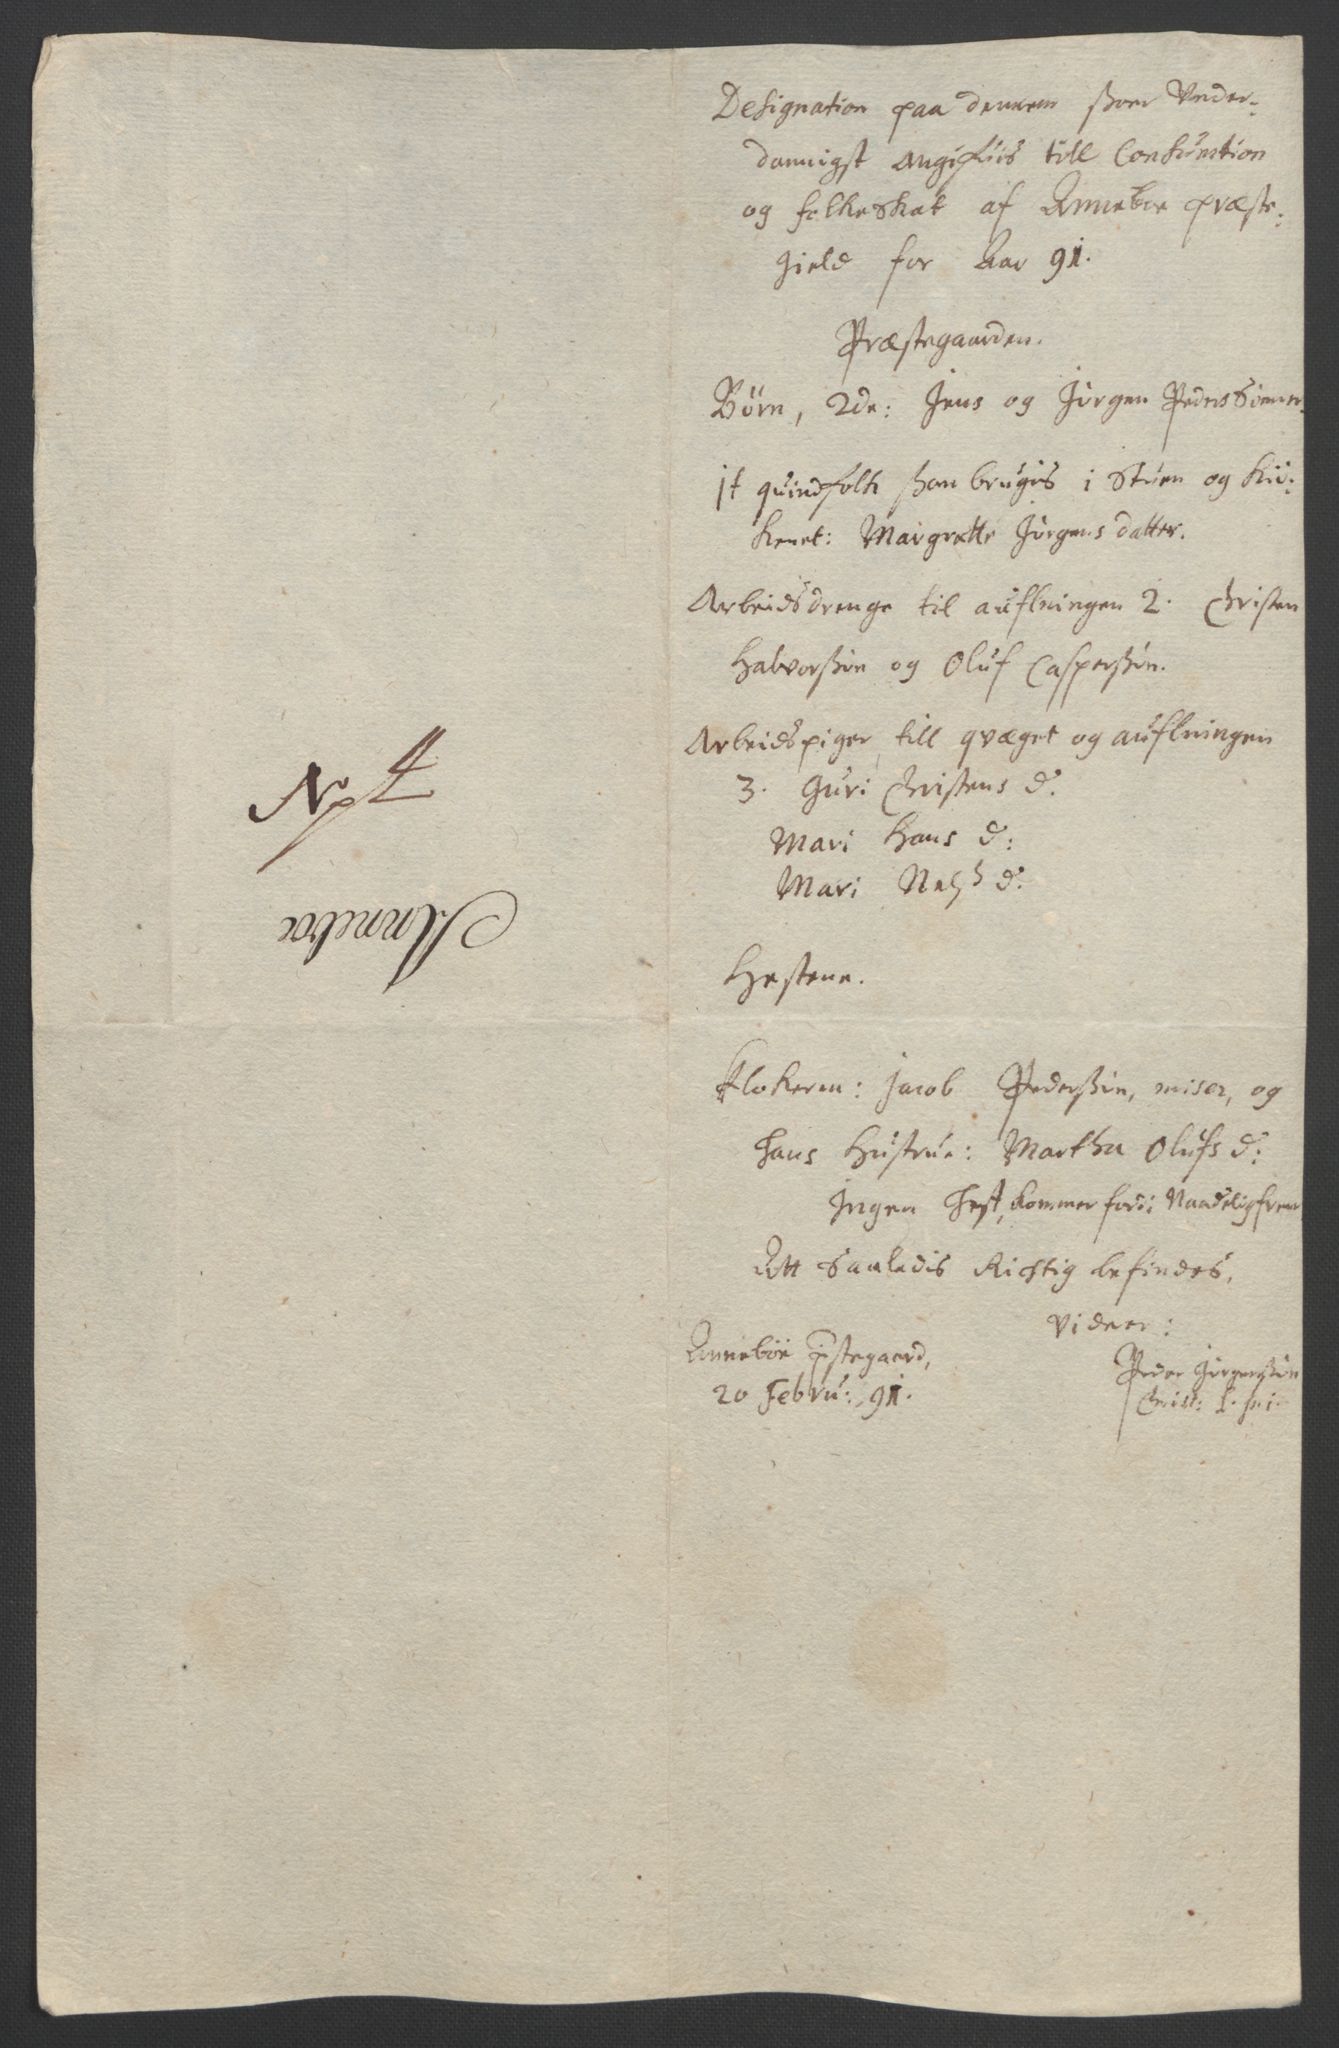 Designation paa dennem ßom Under-
dannigst angifuis till Consumtion
og folkeskat af Annebøe præste-
gield for Aar 91.
Præstegaarden.
Børn, 2de: Jens og Jørgen Peders Sønner
jt quindfolk ßom brugis i Stuen og Kiø-
kenet: Margrætte Jørgens datter.
Arbeidsdrenge til auflningen 2. Christen
Halvorßøn og Oluf Casperßøn.
Arbeidspiger till qvæget og auflningen
3. Guri Christens d:
Mari Hans d:
Mari Nels d:
Hestene.
Klokeren: Jacob Pederßøn, miser, og
hans Hustrue: Martha Olufs d:
Ingen hest, kommer fordi Naadeligfrem
Att Saaledis Rigtig befindes,
Vidner:
Annebøe pstegaard,
20 Febru: 91.
Peder Jørgenßøn
No 4
Annebøe